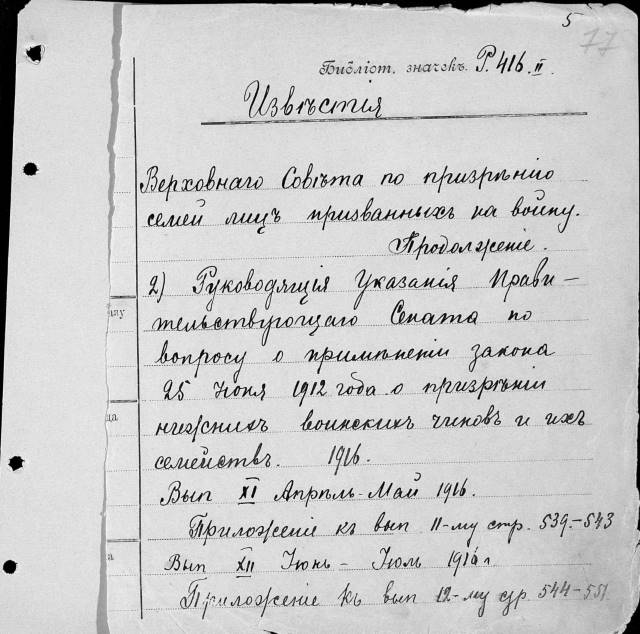 5
77
Библіот. значекъ Р. 416. II.
Извѣстія
Верховнаго Совѣта по призрѣнію
семей лицъ призванныхъ на войну.
Продолженіе.
2) Руководящія Указанія Прави-
тельствующаго Сената по
вопросу о примѣненіи закона
25 Іюня 1912 года о призрѣніи
нижнихъ воинскихъ чиновъ и ихъ
семействъ. 1916.
Вып XI Апрѣль-Май 1916.
Приложеніе къ вып 11-му стр. 539.-543
Вып XII Іюнь - Іюль 1916 г
Приложеніе къ вып 12-му стр 544-551